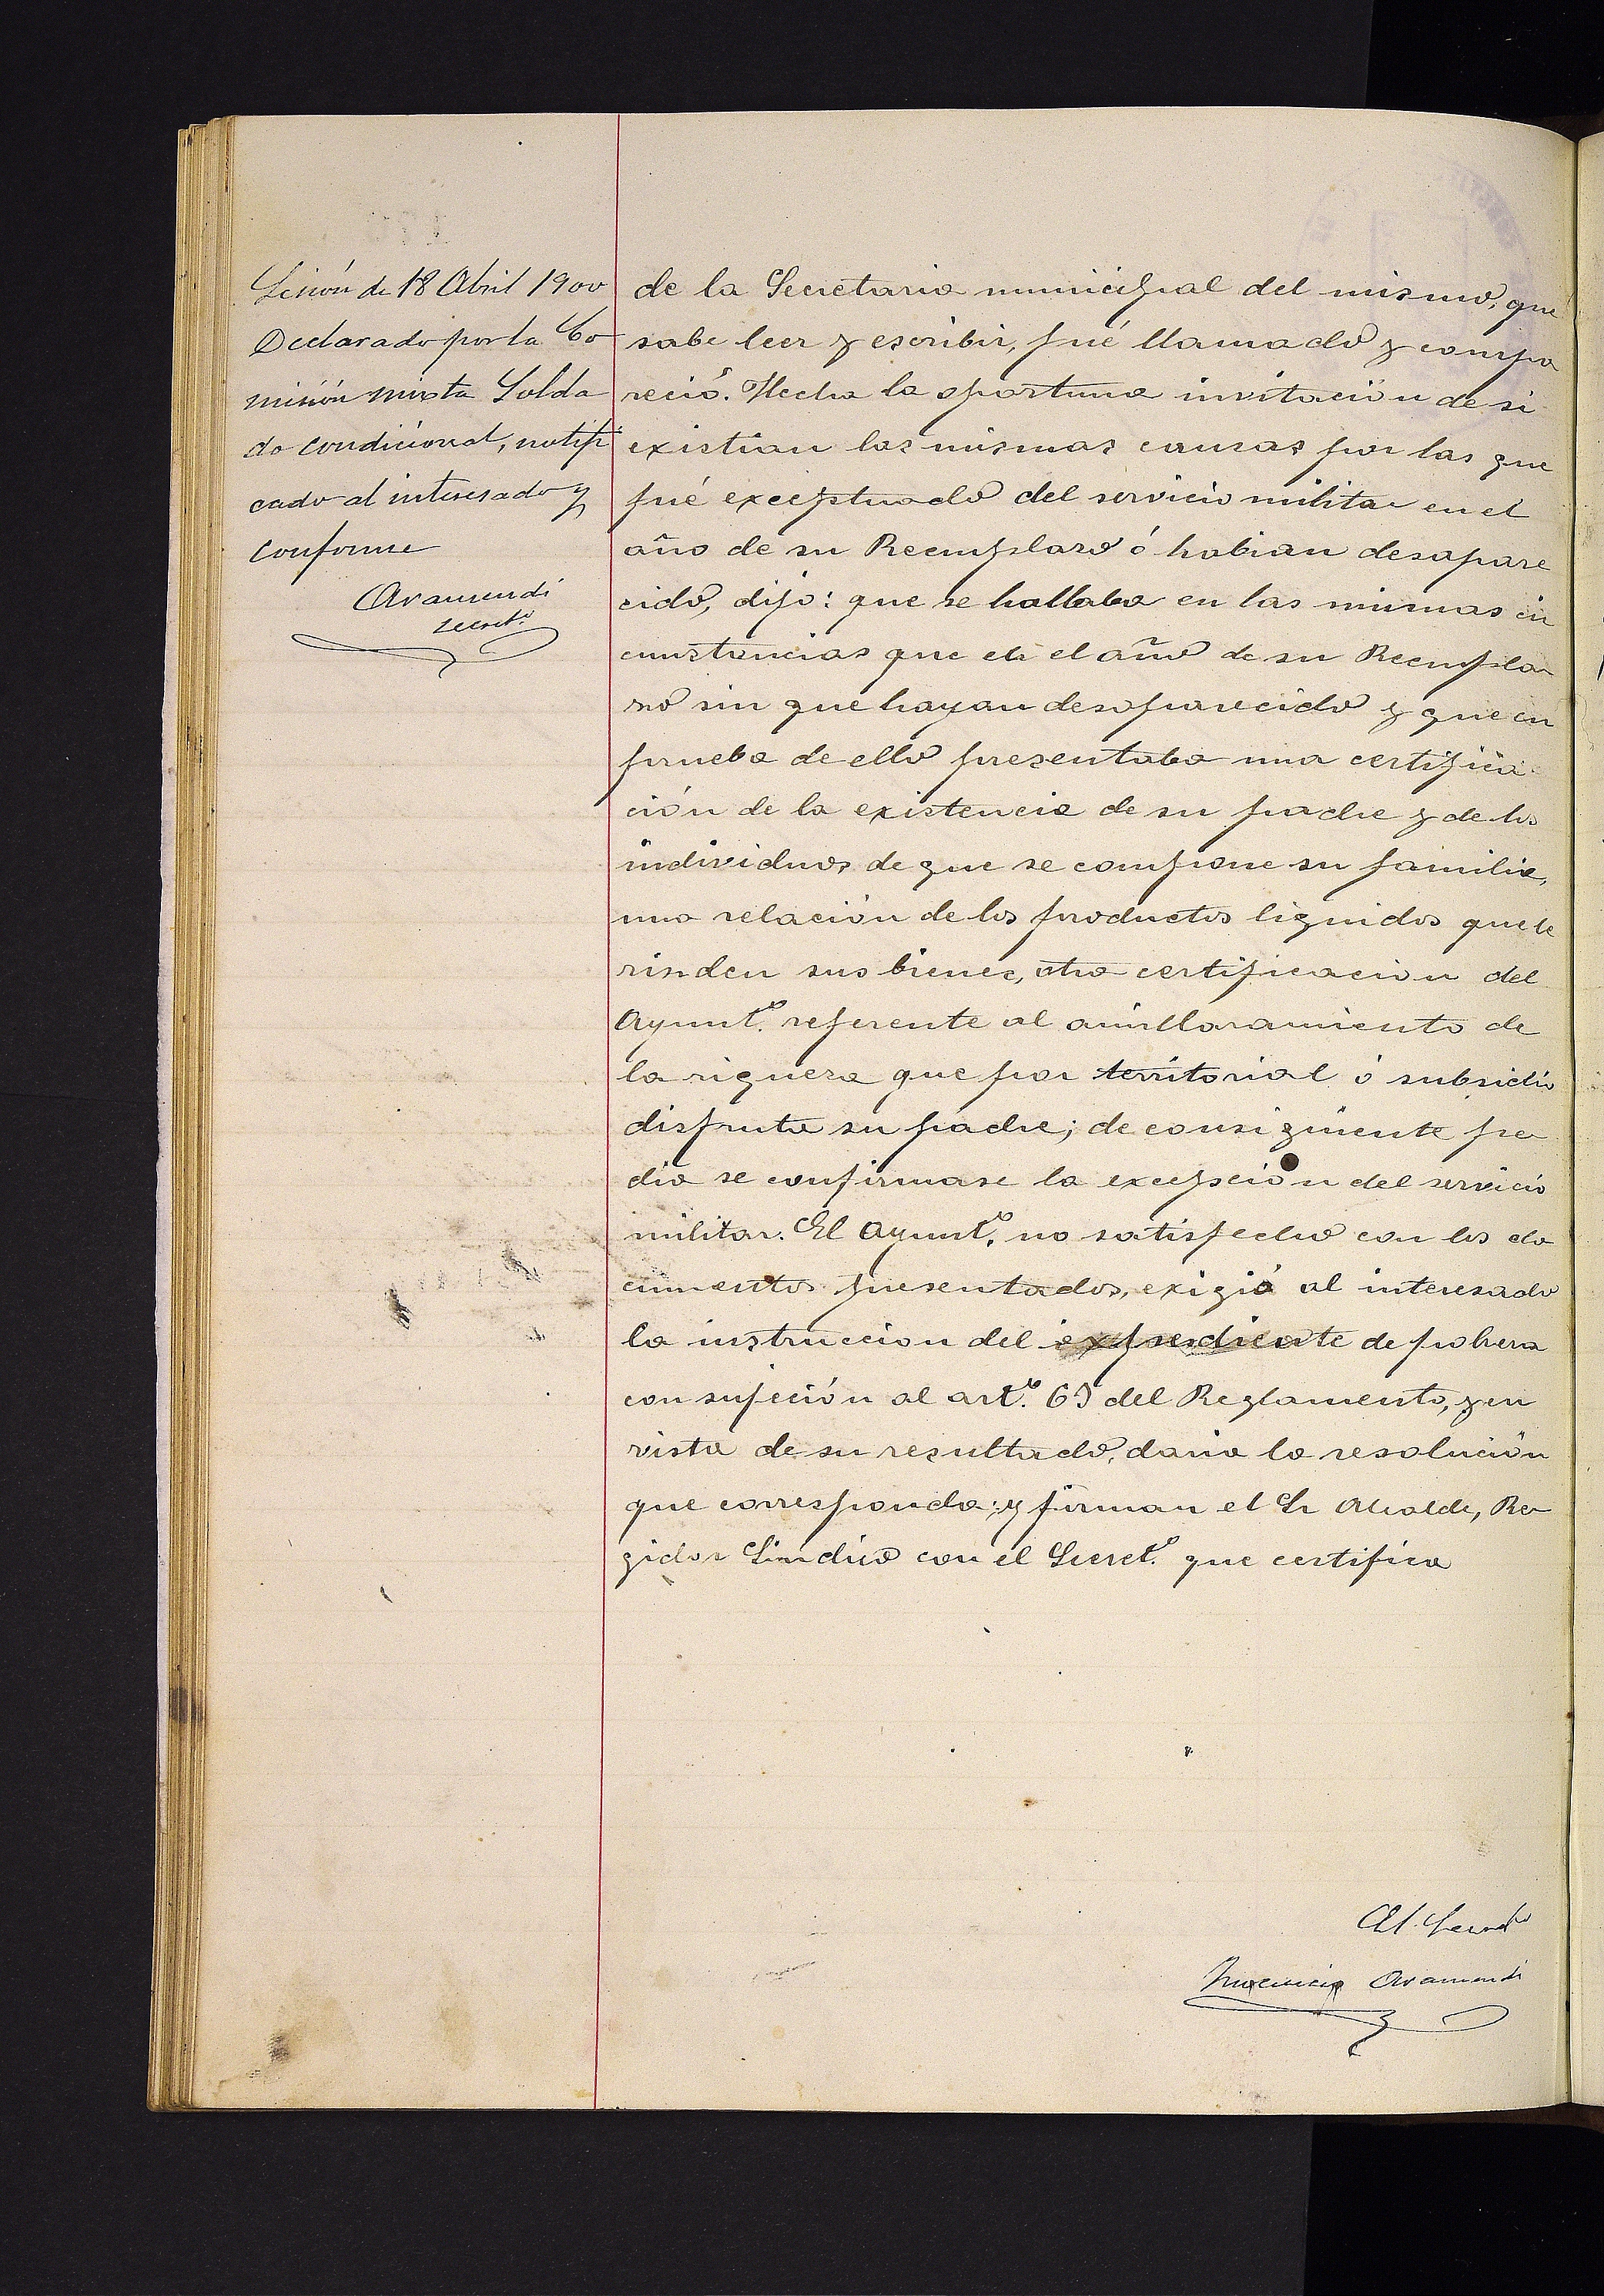 Sesión de 18 Abril 1900
Declarado por la Co
misión mixta Solda
do condicional, notifi
cado al interesado y
conforme
Aramendi
secret.º
de la Secretaria municipal del mismo, que
sabe leer y escribir, fué llamado y compa
reció. Hecha la oportuna invitación de si
existian las mismas causas por las que
fué exceptuado del servicio militar en el
año de su Reemplazo ó habian desapare
cido, dijo: que se hallaba en las mismas cir
cunstancias que en el año de su Reempla
zo sin que hayan desaparecido y que en
prueba de ello presentaba una certifica
ción de la existencia de su padre y de los
individuos de que se compone su familia,
una relación de los productos liquidos que le
rinden sus bienes, otra certificacion del
Ayunt.º referente al amillaramiento de
la riqueza que por territorial ó subsidio
disfruta su padre; de consigüiente pe
dia se confirmase la excepción del servicio
militar. El Ayunt.º no satisfecho con los do
cumentos presentados, exigió al interesado
la instruccion del expediente de pobreza
con sujeción al art.º 69 del Reglamento, y en
vista de su resultado, daria la resolución
que corresponda; y firman el Sr Alcalde, Re
gidor Sindico con el Secret.º que certifica
El Secret.º
Aramendi